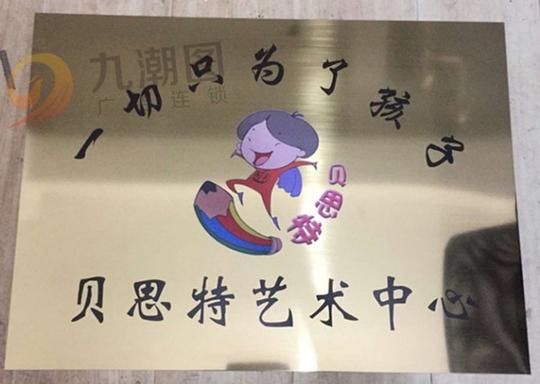 九潮图
广告连锁
一切只为了孩子
贝思特
贝思特艺术中心